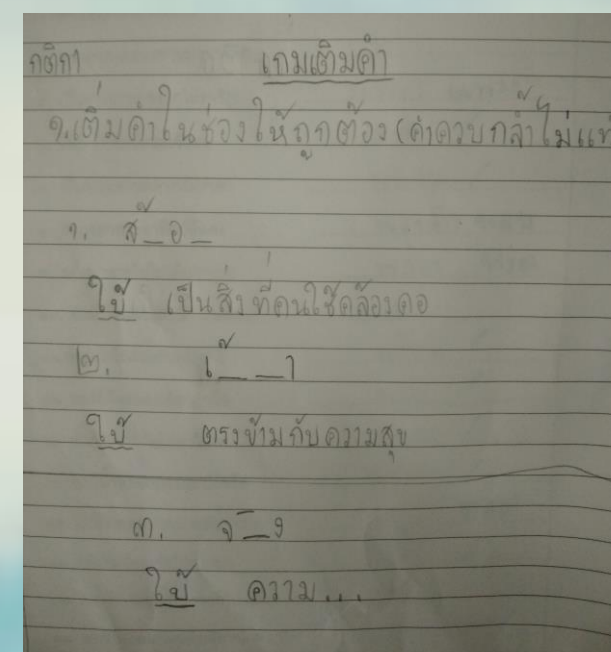 กติกา เกมเติมคำ
๑.เติมคำในช่องให้ถูกต้อง (คำควบกล้ำไม่แท้
๑. ส้_อ_
ใบ้ เป็นสิ่งที่คนใช้คล้องคอ
๒. เ_้ _า
ใบ้ ตรงข้ามกับความสุข
๓. จ_ิง
ใบ้ ความ...